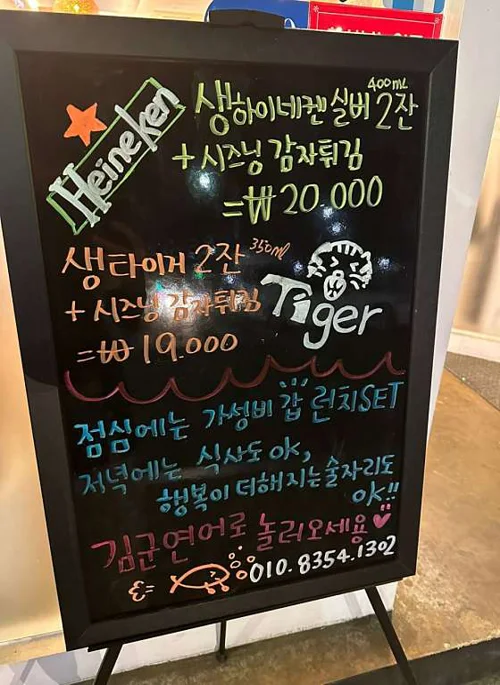 Heineken
생하이네켄 실버 2잔 400ml
+ 시즈닝 감자튀김
= ₩ 20.000
생타이거 2잔 350ml
+ 시즈닝 감자튀김
Tiger
= ₩ 19.000
점심에는 가성비 갑 런치SET
저녁에는 식사도 ok,
행복이 더해지는 술자리도
ok!!
김군연어로 놀러오세용
010.8354.1302